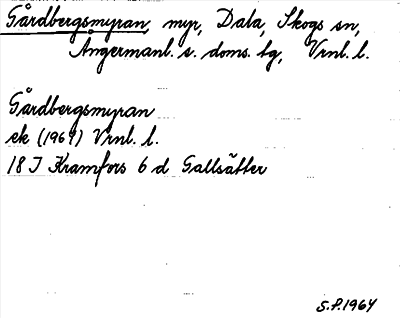 Gårdbergsmyran, myr, Dala, Skogs sn,
Ångermanl. s. doms. lg, Vrnl. l.
Gårdbergsmyran
ek (1964) Vrnl. l.
18 I Kramfors 6 d Gallsätter
S.P. 1964